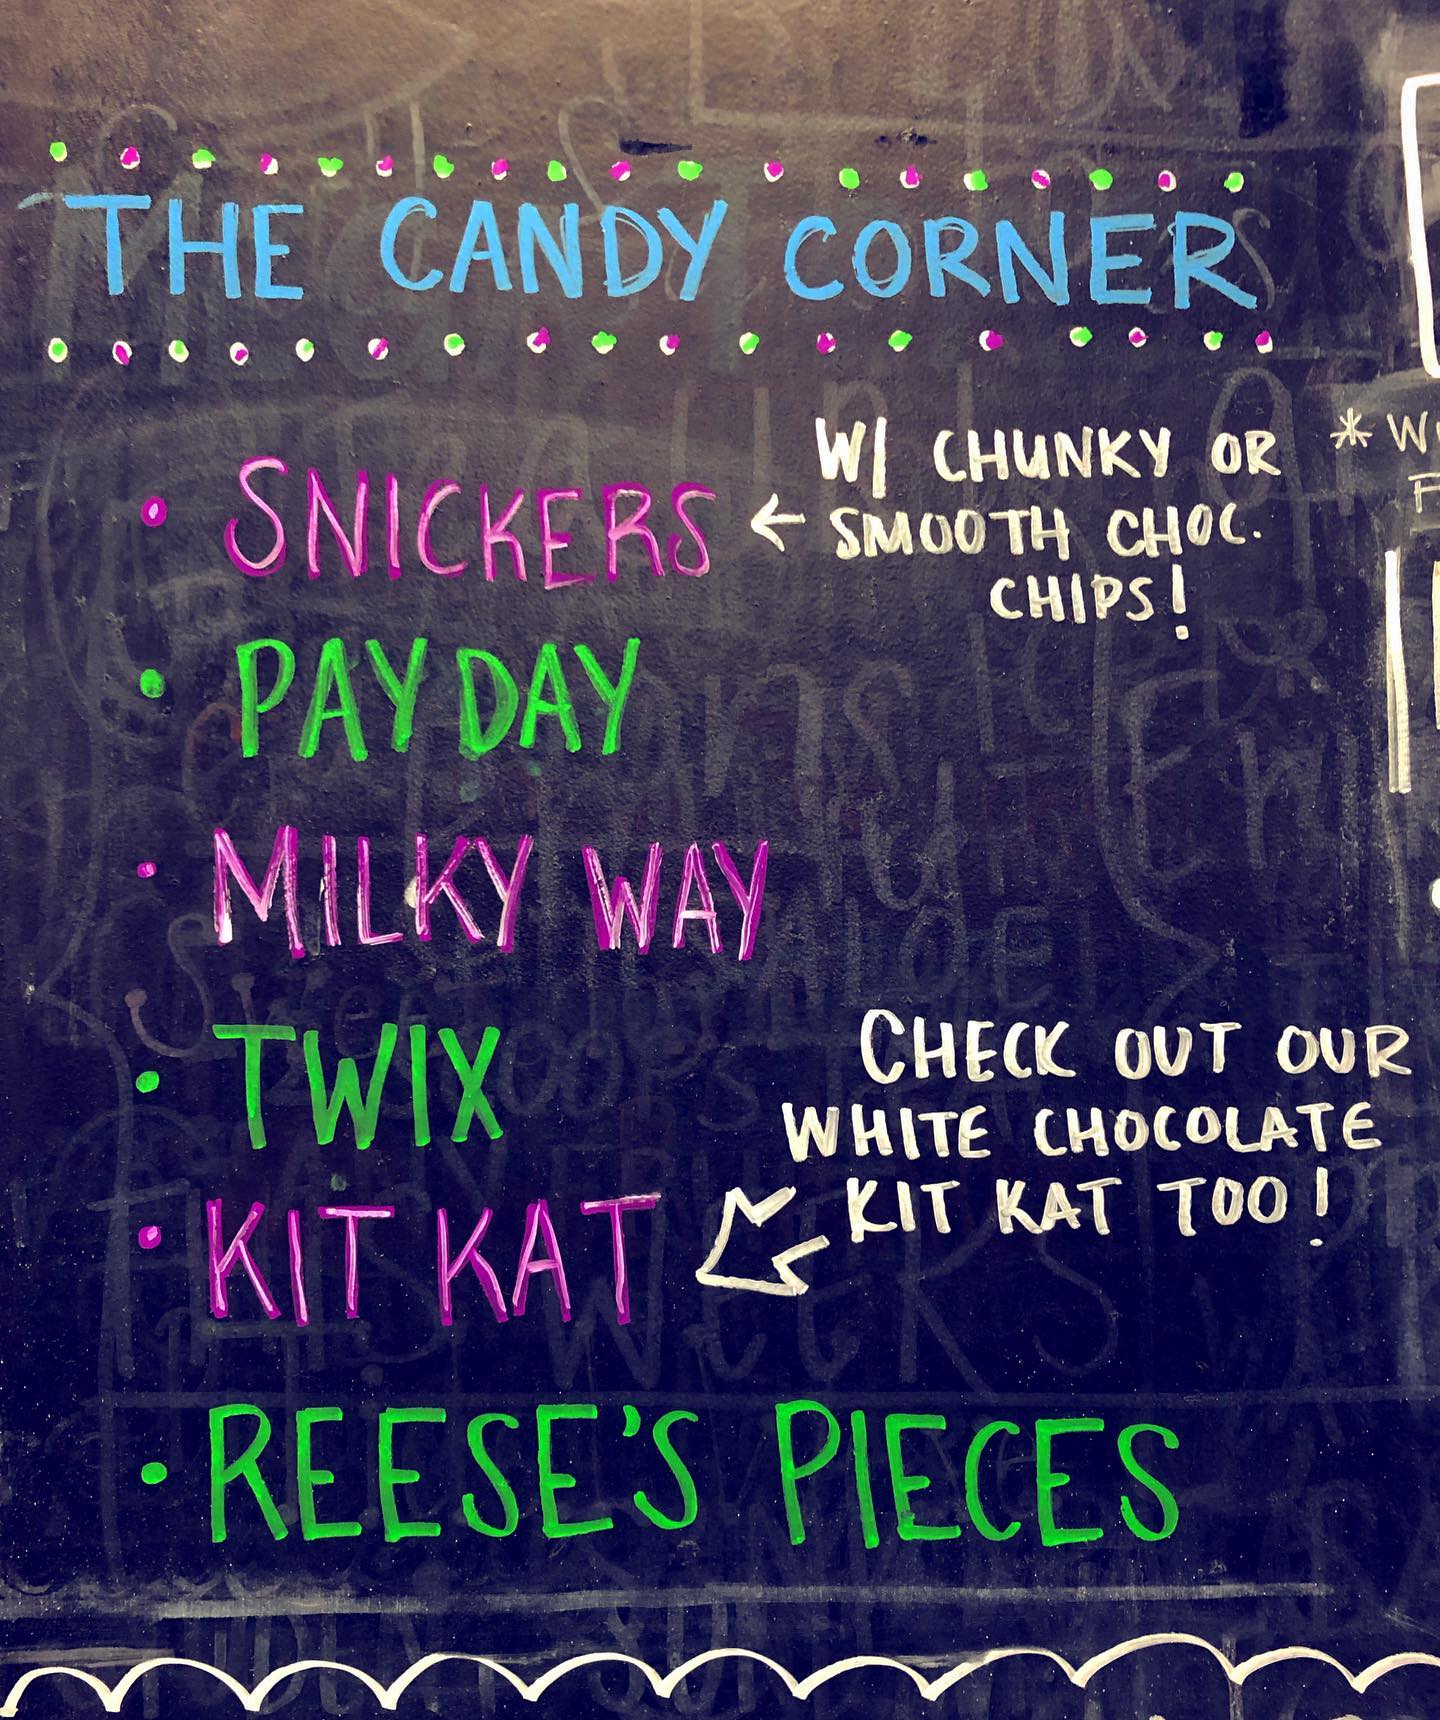 THE CANDY CORNER
• SNICKERS ← W/ CHUNKY OR
SMOOTH CHOC.
CHIPS!
• PAYDAY
• MILKY WAY
• TWIX
CHECK OUT OUR
WHITE CHOCOLATE
KIT KAT TOO!
• KIT KAT
• REESE'S PIECES